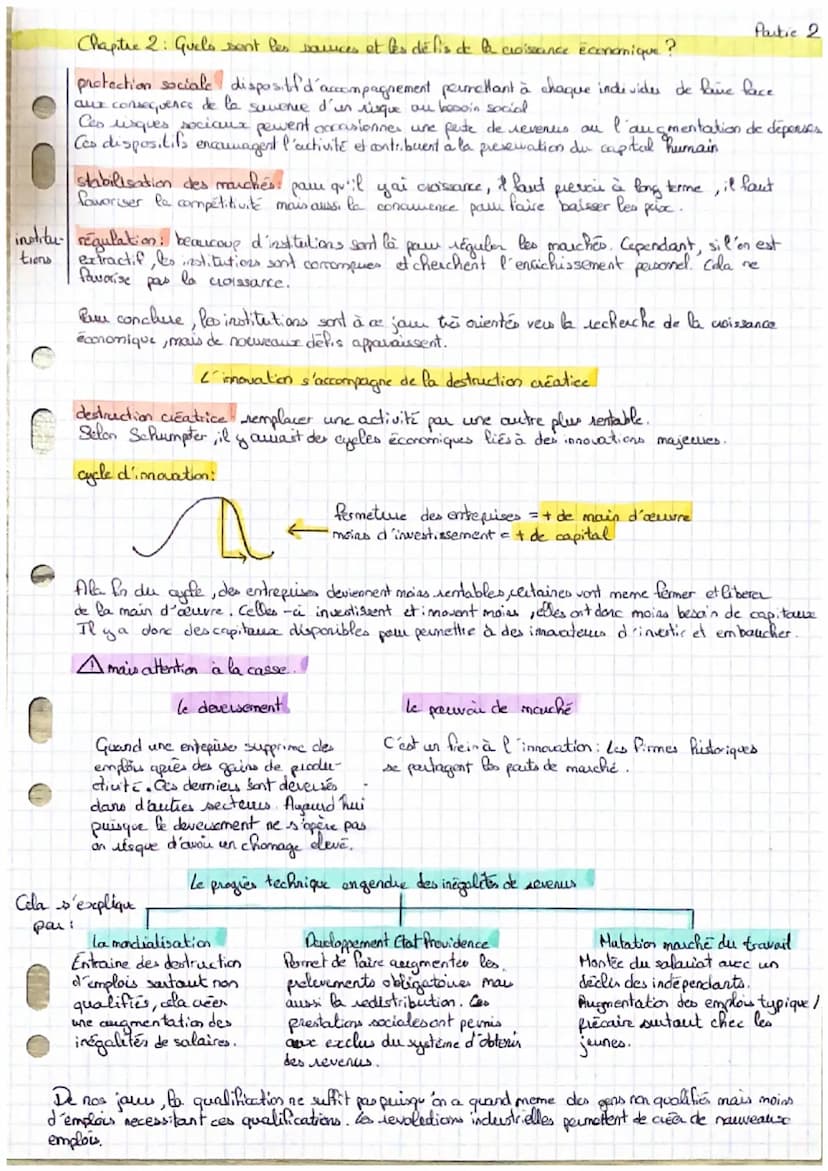 Partie 2
Chapitre 2 : Quels sont les sources et les défis de la croissance économique ?
protection sociale : dispositif d'accompagnement permettant à chaque individus de faire face
aux consequence de la survenue d'un risque ou besoin social
Ces risques sociaux peuvent occasionner une perte de revenus ou l'augmentation de dépenses
Ces dispositifs encouragent l'activité et contribuent à la preservation du capital humain
stabilisation des marchés : pour qu'il y ai croissance, il faut prevoir à long terme, il faut
favoriser la compétitivité mais aussi la concurrence pour faire baisser les prix.
institu-
tions
régulation : beaucoup d'institutions sont là pour réguler les marchés. Cependant, si l'on est
extractif, les institutions sont corrompues et cherchent l'enrichissement personel. Cela ne
favorise pas la croissance.
Pour conclure, les institutions sont à ce jour très orientés vers la recherche de la croissance
économique, mais de nouveaux défis apparaissent.
L'innovation s'accompagne de la destruction créatice
destruction créatrice : remplacer une activité par une autre plus rentable.
Selon Schumpter, il y aurait des cycles économiques liés à des innovations majeures.
cycle d'innovation :
fermeture des entreprises = + de main d'œuvre
moins d'investissement = + de capital
A la fin du cycle, des entreprises deviennent moins rentables, certaines vont meme fermer et liberer
de la main d'œuvre. Celles-ci investissent et innovent moins, elles ont donc moins besoin de capitaux
Il y a donc des capitaux disponibles pour permettre à des innovateurs d'investir et embaucher.
⚠ mais attention à la casse.
le deversement
le pouvoir de marché
Quand une entreprise supprime des
emplois après des gains de produ-
ctivité. Ces derniers sont deversés
dans d'autres secteurs. Aujourd'hui
puisque le deversement ne s'opère pas
on risque d'avoir un chomage élevé.
C'est un frein à l'innovation : les firmes historiques
se partagent les parts de marché.
Le progrès technique engendre des inégalités de revenus
Cela s'explique
par :
la mondialisation
Entraine des destruction
d'emplois surtout non
qualifiés, cela créer
une augmentation des
inégalités de salaires.
Developpement Etat Providence
Permet de faire augmenter les
prelevements obligatoires mais
aussi la redistribution. Ces
prestations sociales ont permis
aux exclus du système d'obtenir
des revenus.
Mutation marché du travail
Montée du salariat avec un
déclin des indépendants.
Augmentation des emplois typique /
précaire surtout chez les
jeunes.
De nos jours, la qualification ne suffit pas puisqu'on a quand meme des gens non qualifiés mais moins
d'emplois necessitant ces qualifications. Les revolutions industrielles permettent de créer de nouveaux
emplois.